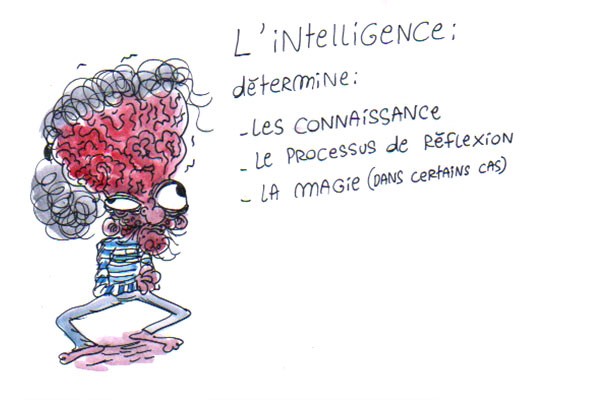 L'iNtelligeNce:
détermine:
- Les connaissance
- Le processus de réflexion
- La magie (dans certains cas)